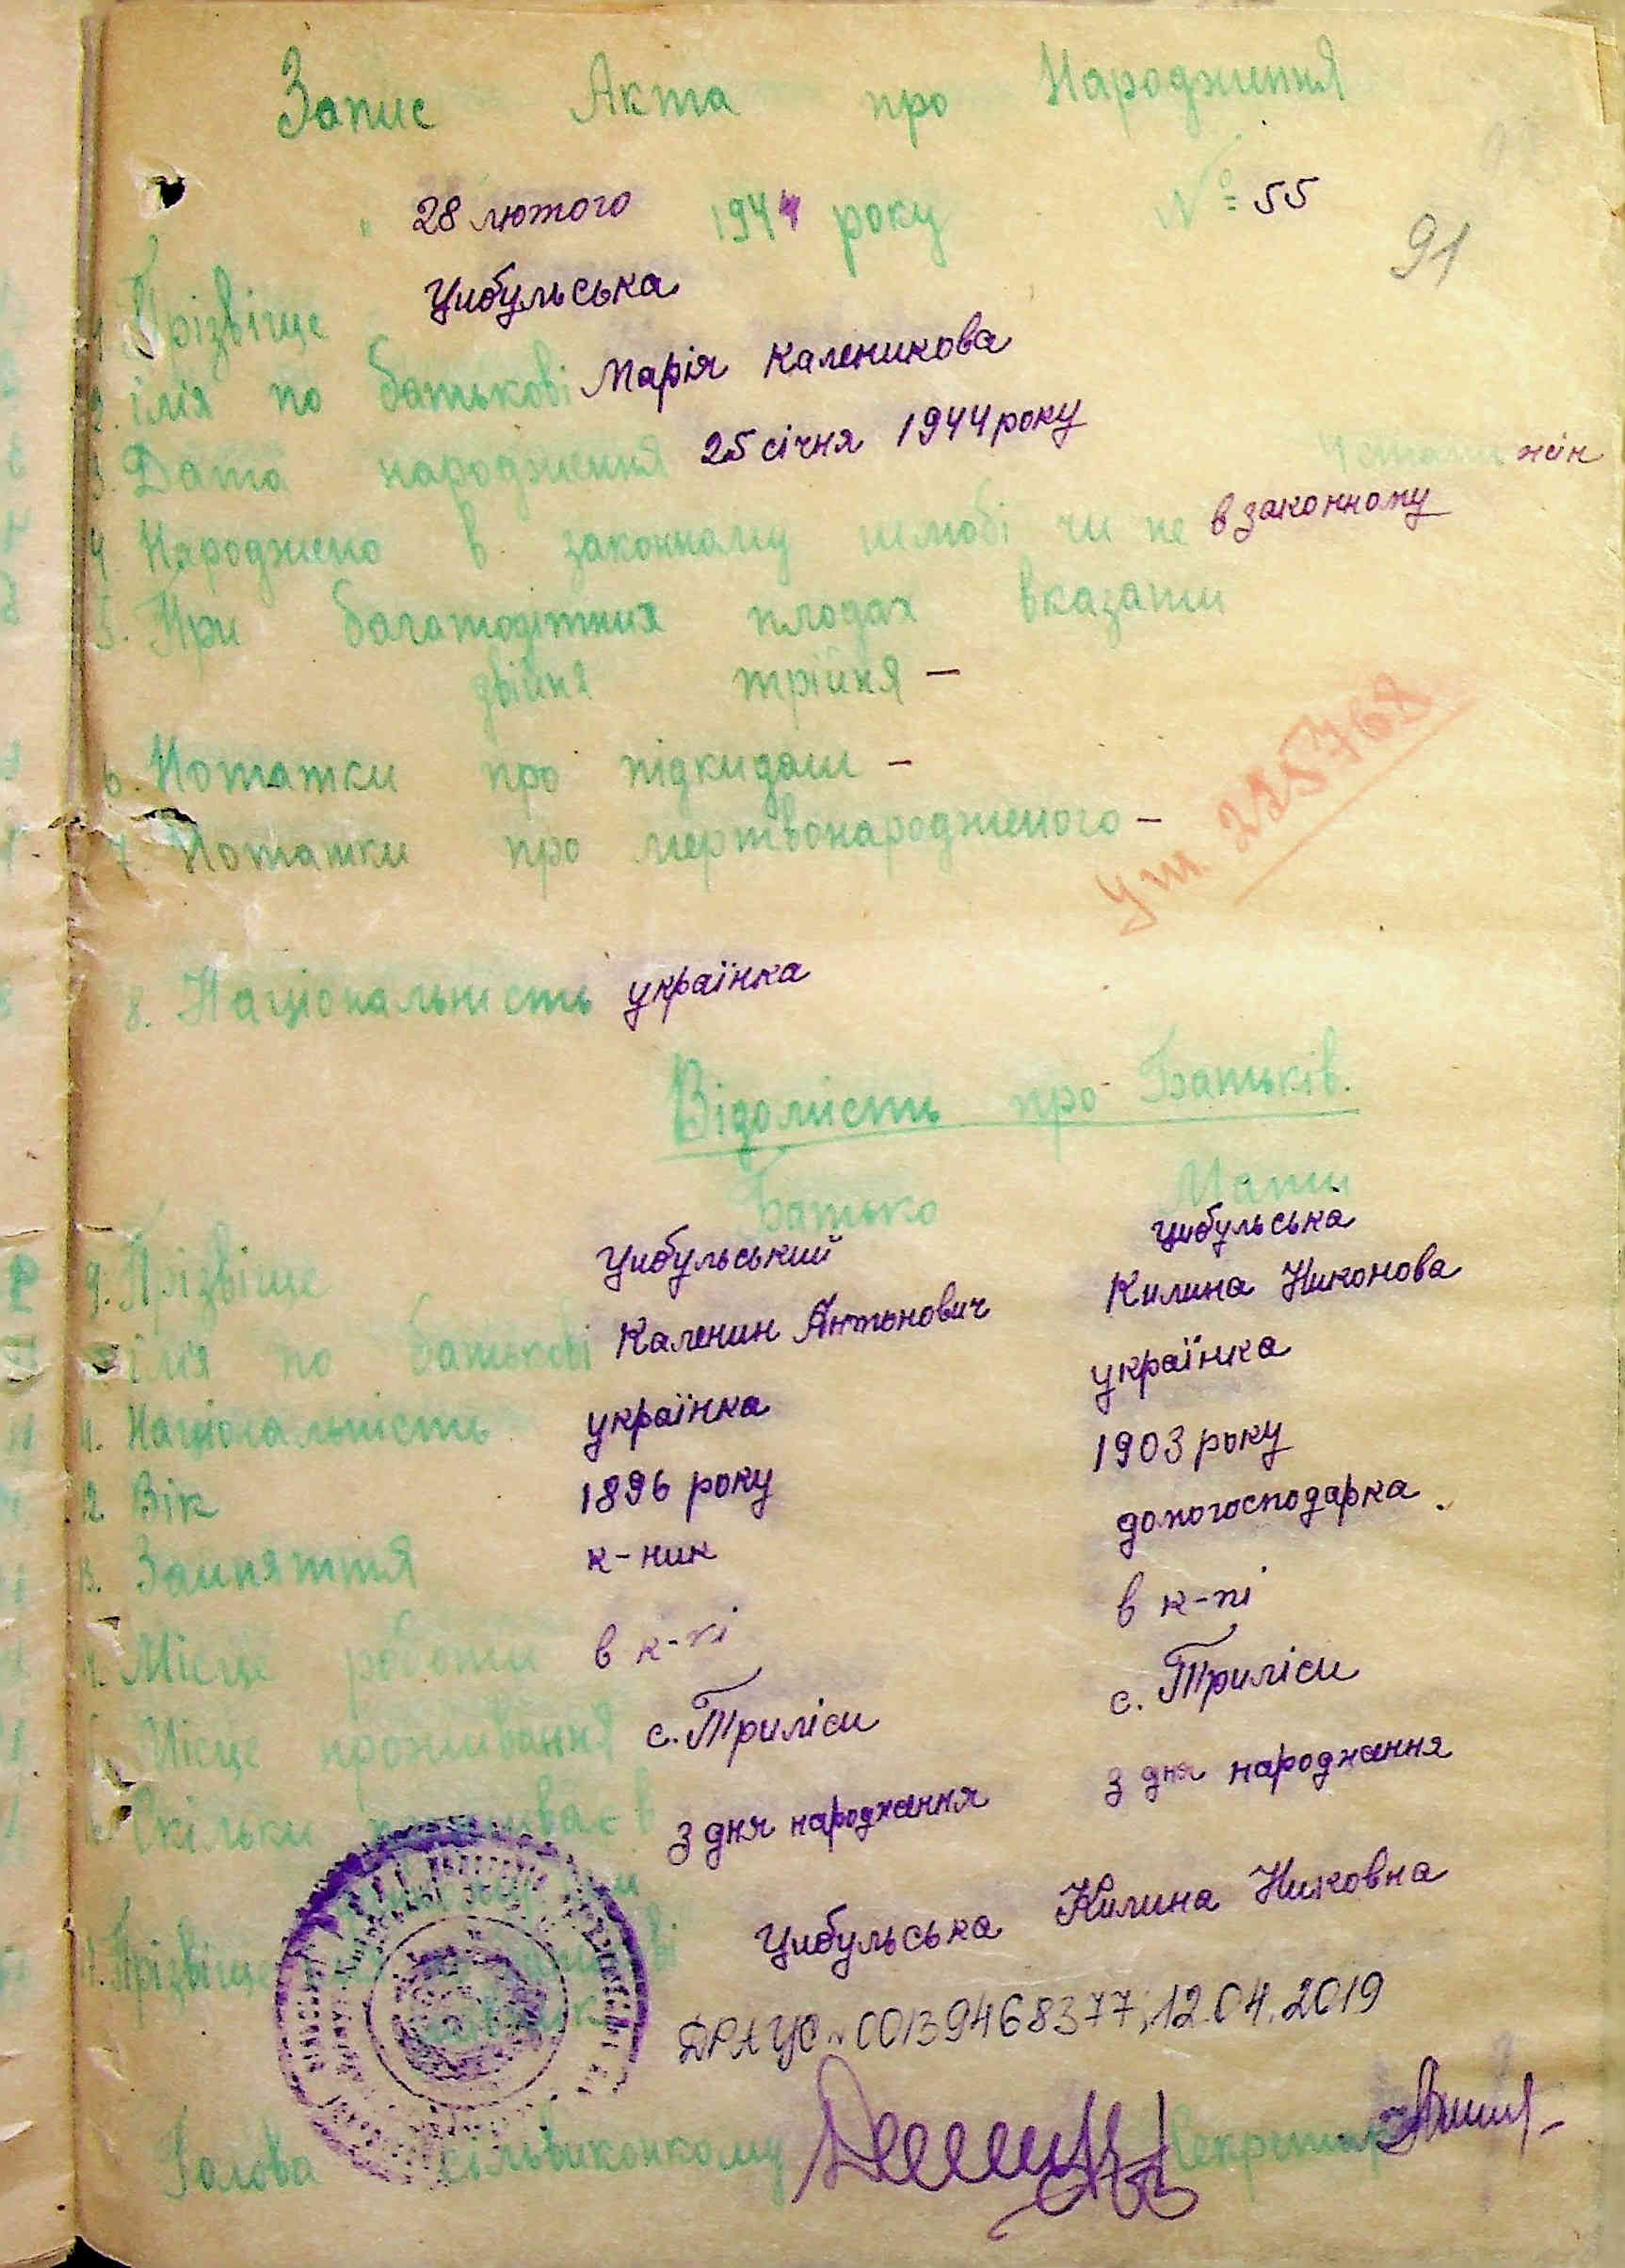 Запис Акта про Народження
28 лютого 1944 року № 55
91
1 Прізвіще Цибульська
2. імя по батькові Марія Каленикова
3. Дата народження 25 січня 1944 року жін
4 Народжено в законному шлюбі чи не в законному
5. При багатодітних плодах вказати
двійня трійня –
6. Нотатки про підкидаш –
7. Нотатки про мертвонародженого –
8. Національність українка
Відомість про Батьків.
Батько Мати
9. Прізвіще Цибульский Цибульська
імя по батькові Каленин Антонович Килина Никонова
11. Національність українка українка
12 Вік 1896 року 1903 року
13. Заиняття к-ник домогосподарка
14. Місце роботи в к-пі в к-пі
15. Місце проживання с. Триліси с. Триліси
Скільки проживає в з дня народжання з дня народжання
Прізвіще Цибульська Килина Никовна
ДРАЦС 00139468377; 12.04.2019
Голова сільвиконкому Секретар